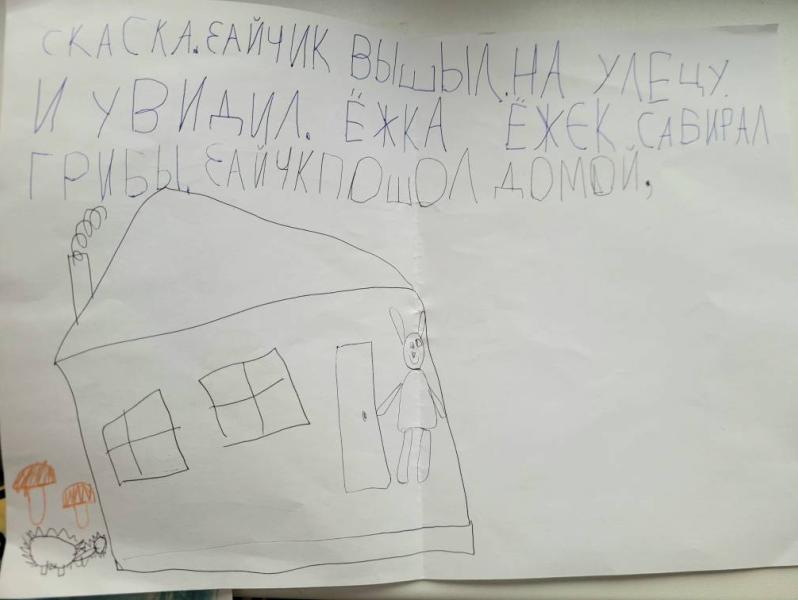 СКАСКА. ЗАЙЧИК ВЫШЫЛ. НА УЛЕЦУ.
И УВИДИЛ. ЁЖКА ЁЖЕК САБИРАЛ
ГРИБЫ. ЗАЙЧКПОШОЛ ДОМОЙ,